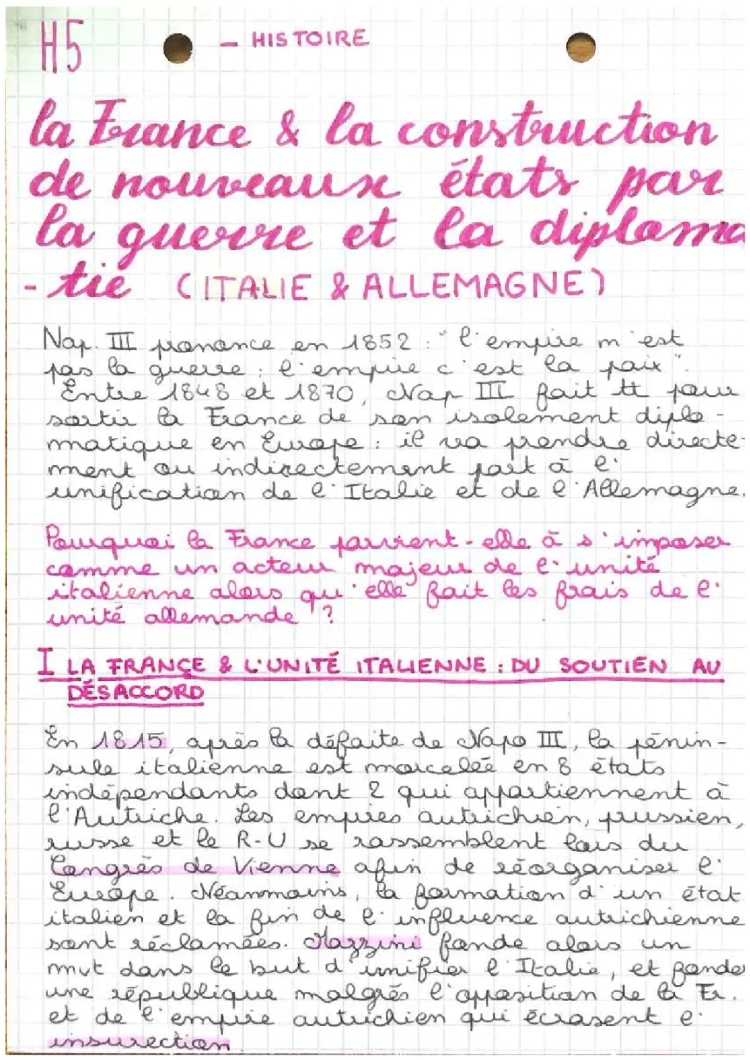 H5
- HISTOIRE
la France & la construction
de nouveaux états par
la guerre et la diploma
- tie (ITALIE & ALLEMAGNE)
Nap. III prononce en 1852 : "l'empire m'est
pas la guerre ; l'empire c'est la paix".
Entre 1848 et 1870, Nap III fait tt pour
sortir la France de son isolement diplo-
matique en Europe : il va prendre directe-
ment ou indirectement part à l'
unification de l'Italie et de l'Allemagne.
Pourquoi la France parvient-elle à s'imposer
comme un acteur majeur de l'unité
italienne alors qu'elle fait les frais de l'
unité allemande ?
I LA FRANCE & L'UNITÉ ITALIENNE : DU SOUTIEN AU
DÉSACCORD
En 1815, après la défaite de Napo III, la pénin-
sule italienne est morcelée en 8 états
indépendants dont 2 qui appartiennent à
l'Autriche. Les empires autrichien, prussien,
russe et le R-U se rassemblent lors du
Congrès de Vienne afin de réorganiser l'
Europe. Néanmoins, la formation d'un état
italien et la fin de l'influence autrichienne
sont réclamées. Mazzini fonde alors un
mvt dans le but d'unifier l'Italie, et fonder
une république malgrés l'opposition de la Fr.
et de l'empire autrichien qui écrasent l'
insurection.